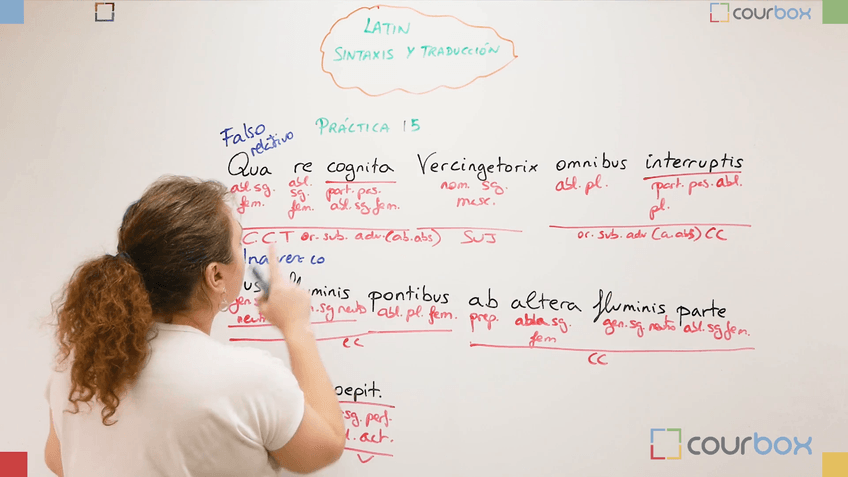 courbox
LATIN
SINTAXIS Y TRADUCCIÓN
Falso
relativo
PRÁCTICA 15
Qua re cognita Vercingetorix omnibus interruptis
abl. sg. abl. part. pas. nom. sg. abl. pl. part. pas. abl.
fem. sg. abl. sg. fem. masc. pl.
fem.
CCT or. sub. adv. (ab. abs) SUJ or. sub. adv (a. abs) CC
pontibus ab altera fluminis parte
gen. sg. neutro abl. pl. fem. prep. abla sg. gen. sg. neutro abl. sg fem.
fem
CC CC
oepit.
sg. perf.
act.
V
courbox